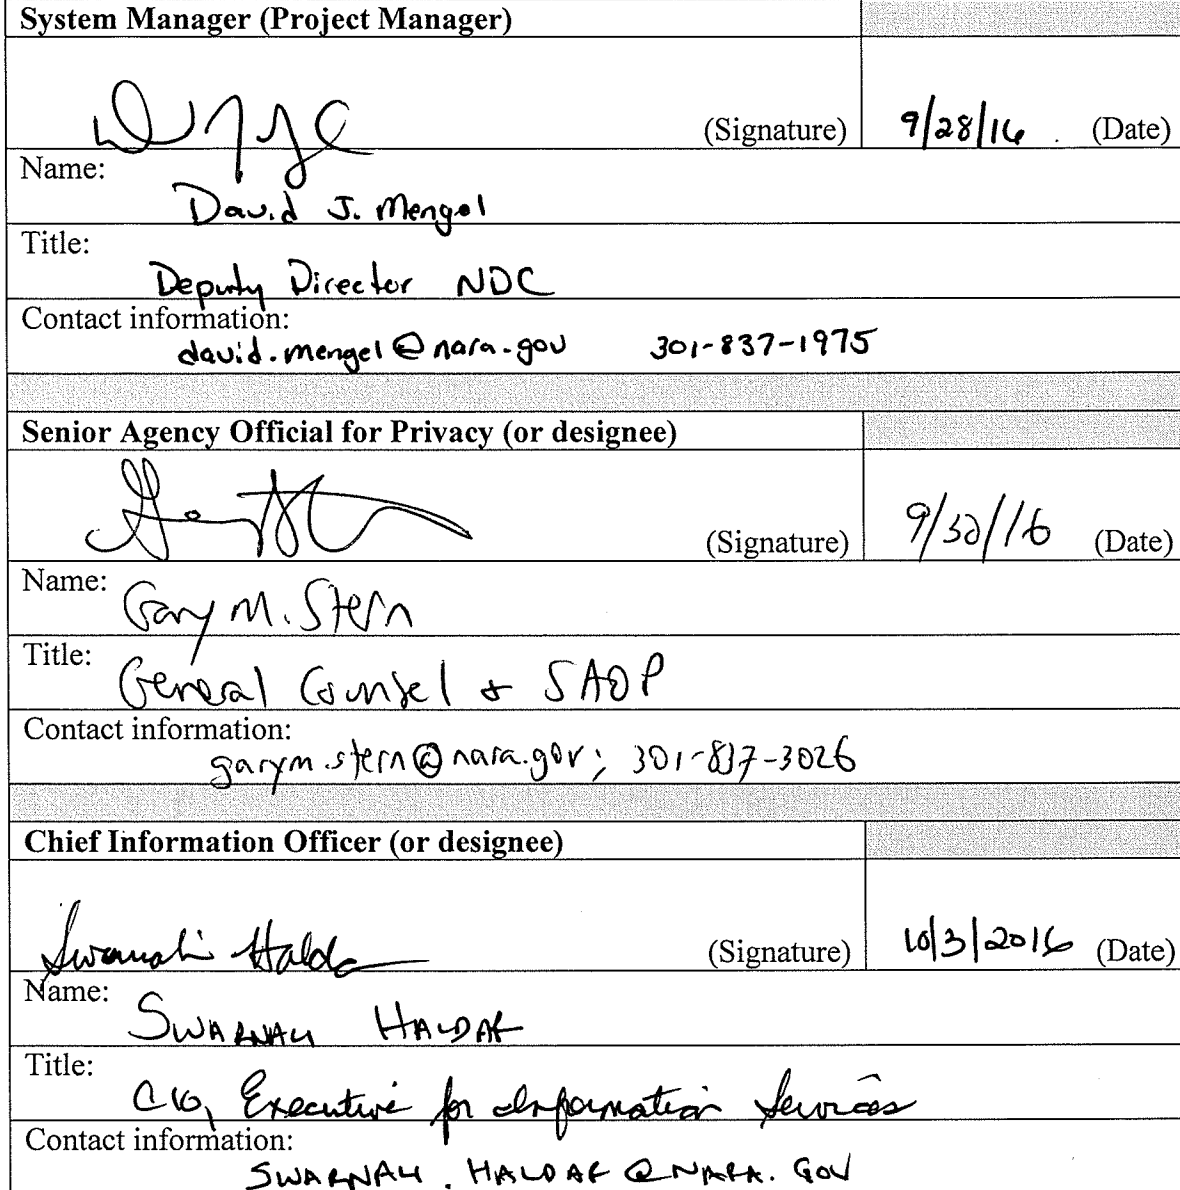 System Manager (Project Manager)
(Signature) 9/28/16 (Date)
Name:
David J. Mengel
Title:
Deputy Director NDC
Contact information:
david.mengel@nara.gov 301-837-1975
Senior Agency Official for Privacy (or designee)
(Signature) 9/30/16 (Date)
Name: Gary M. Stern
Title: General Counsel & SAOP
Contact information:
garym.stern@nara.gov; 301-837-3026
Chief Information Officer (or designee)
Swarnali Haldar (Signature) 10/3/2016 (Date)
Name: SWARNALI HALDAR
Title: CIO, Executive for Information Services
Contact information:
SWARNALI.HALDAR@NARA.GOV